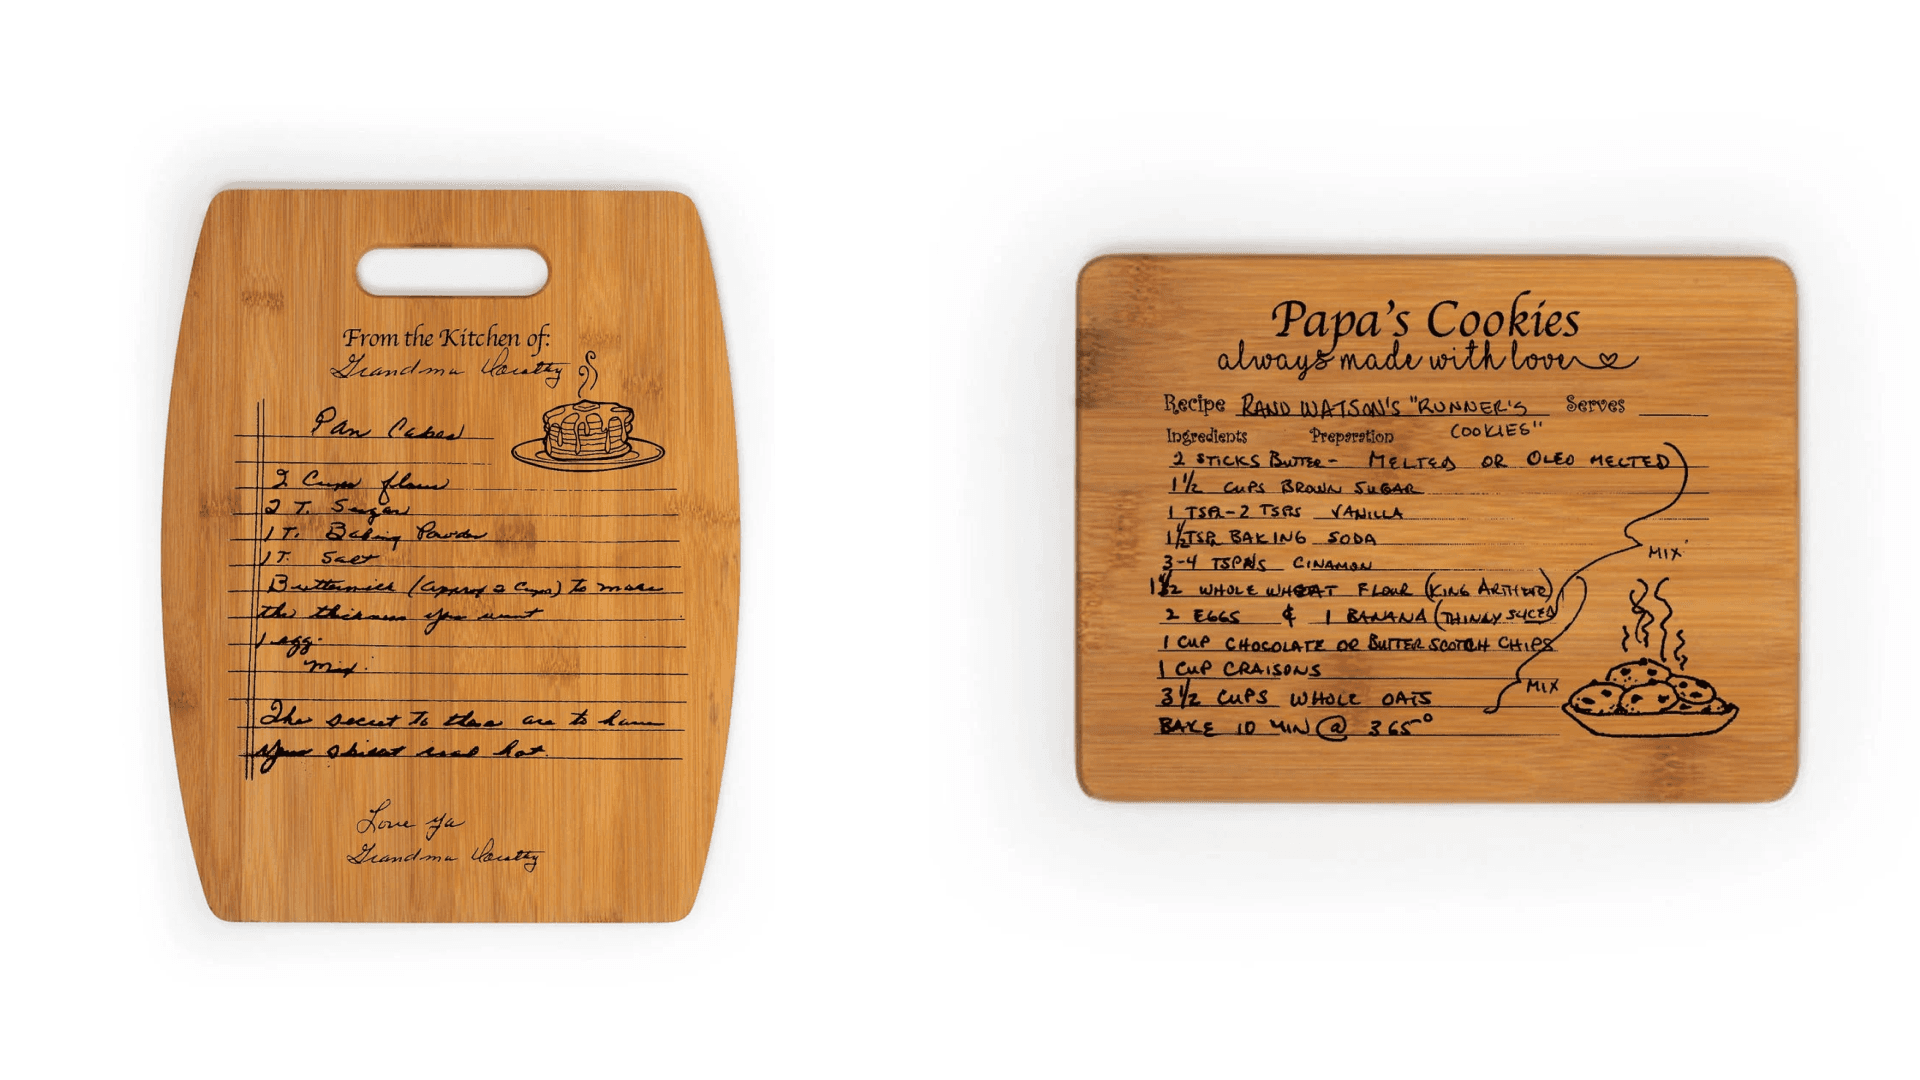 From the Kitchen of:
Grandma Dorothy
Pan Cakes
2 Cups flour
2 T. Sugar
1 T. Baking Powder
1 T. Salt
Buttermilk (approx 2 Cups) to make
the thickness you want
1 egg.
Mix.
The secret to these are to have
your skillet real hot.
Love ya
Grandma Dorothy
Papa's Cookies
always made with love
Recipe RAND WATSON'S "RUNNER'S Serves
COOKIES"
Ingredients Preparation
2 STICKS BUTTER - MELTED OR OLEO MELTED
1 1/2 CUPS BROWN SUGAR
1 TSP - 2 TSPS VANILLA
1 1/2 TSP BAKING SODA
MIX
3-4 TSPNS CINAMON
1 1/2 WHOLE WHEAT FLOUR (KING ARTHUR)
2 EGGS & 1 BANANA (THINLY SLICED
1 CUP CHOCOLATE OR BUTTERSCOTCH CHIPS
1 CUP CRAISONS
MIX
3 1/2 CUPS WHOLE OATS
BAKE 10 MIN @ 365°